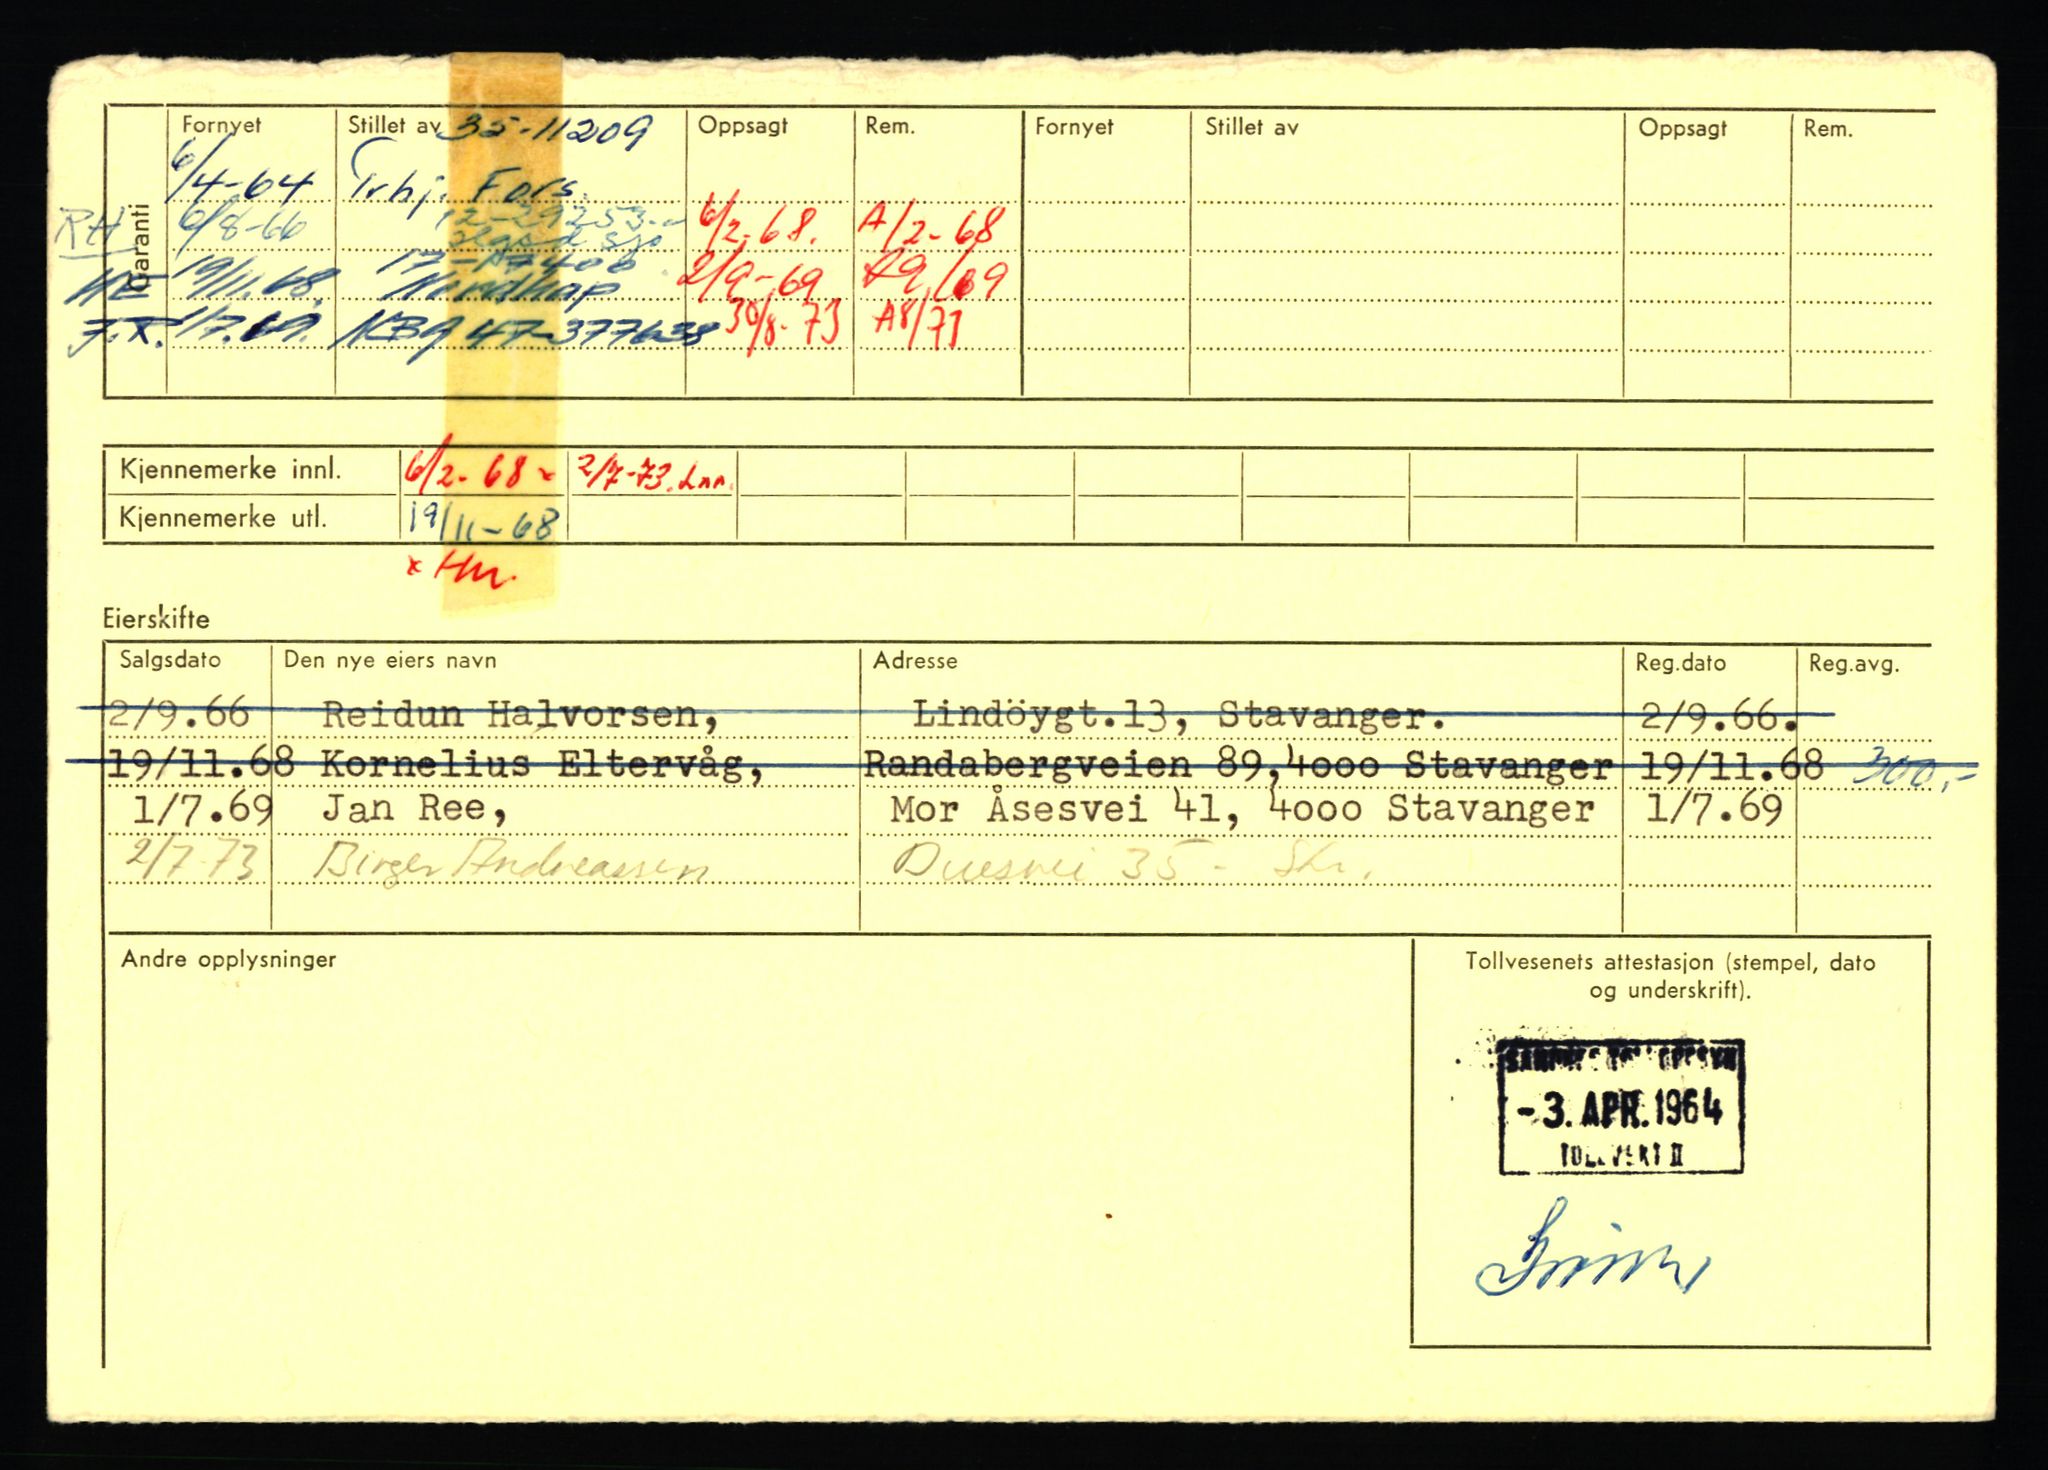 Fornyet Stillet av 35-11209 Oppsagt Rem. Fornyet Stillet av Oppsagt Rem.
Garanti
6/4-64 Trhj. Fors.
RH 6/8-66 12-29253 6/2-68. A/2-68
19/11.68. 2/9-69 A9/69
J.R. 1/7.69. 47-377638 30/8-73 A8/73
Kjennemerke innl. 6/2-68 x 2/7-73.
Kjennemerke utl. 19/11-68
x Hm.
Eierskifte
Salgsdato Den nye eiers navn Adresse Reg.dato Reg.avg.
2/9.66 Reidun Halvorsen, Lindöygt.13, Stavanger. 2/9.66.
19/11.68 Kornelius Eltervåg, Randabergveien 89,4000 Stavanger 19/11.68 300,-
1/7.69 Jan Ree, Mor Åsesvei 41, 4000 Stavanger 1/7.69
2/7-73 Birger Andreassen Duesvei 35 -
Andre opplysninger
Tollvesenets attestasjon (stempel, dato
og underskrift).
-3. APR. 1964